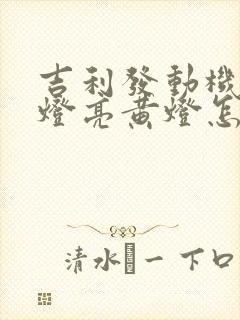 吉利發動機
燈亮黃燈怎
清水 一下口